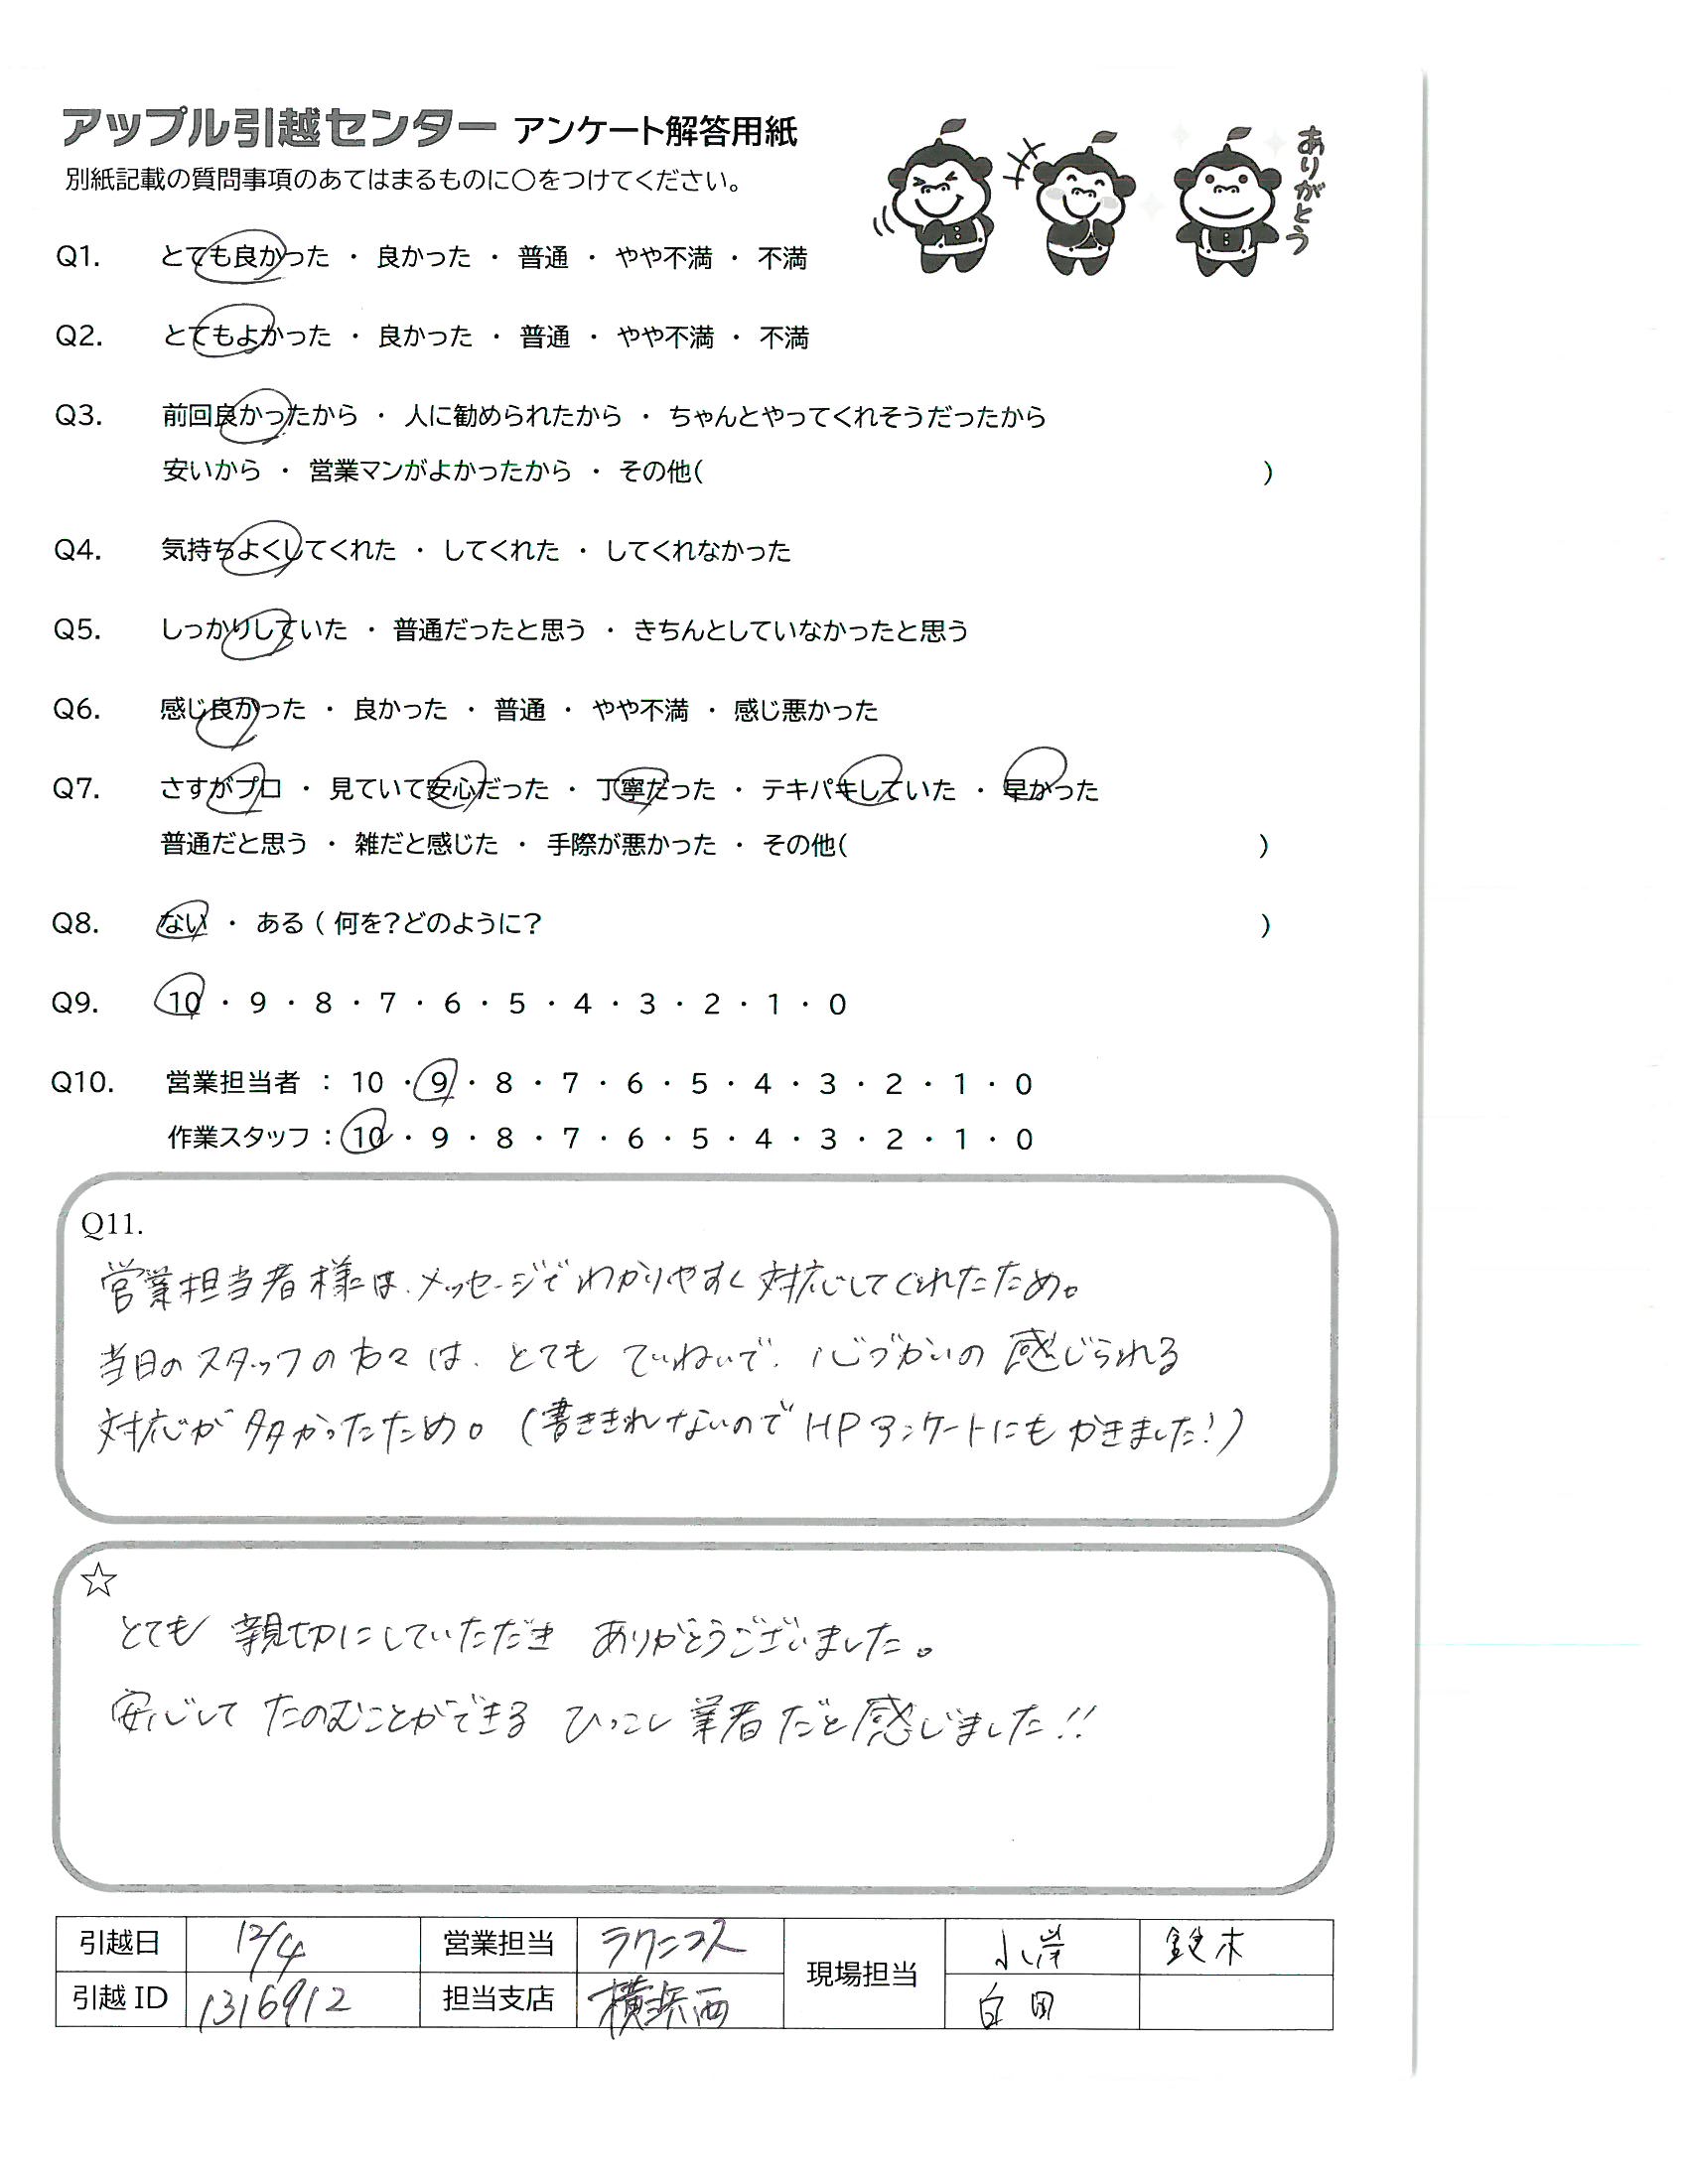 アップル引越センター アンケート解答用紙
別紙記載の質問事項のあてはまるものに○をつけてください。
ありがとう
Q1. とても良かった ・ 良かった ・ 普通 ・ やや不満 ・ 不満
Q2. とてもよかった ・ 良かった ・ 普通 ・ やや不満 ・ 不満
Q3. 前回良かったから ・ 人に勧められたから ・ ちゃんとやってくれそうだったから
安いから ・ 営業マンがよかったから ・ その他( )
Q4. 気持ちよくしてくれた ・ してくれた ・ してくれなかった
Q5. しっかりしていた ・ 普通だったと思う ・ きちんとしていなかったと思う
Q6. 感じ良かった ・ 良かった ・ 普通 ・ やや不満 ・ 感じ悪かった
Q7. さすがプロ ・ 見ていて安心だった ・ 丁寧だった ・ テキパキしていた ・ 早かった
普通だと思う ・ 雑だと感じた ・ 手際が悪かった ・ その他( )
Q8. ない ・ ある ( 何を?どのように? )
Q9. 10 ・ 9 ・ 8 ・ 7 ・ 6 ・ 5 ・ 4 ・ 3 ・ 2 ・ 1 ・ 0
Q10. 営業担当者 : 10 ・ 9 ・ 8 ・ 7 ・ 6 ・ 5 ・ 4 ・ 3 ・ 2 ・ 1 ・ 0
作業スタッフ : 10 ・ 9 ・ 8 ・ 7 ・ 6 ・ 5 ・ 4 ・ 3 ・ 2 ・ 1 ・ 0
Q11.
営業担当者様は、メッセージでわかりやすく対応してくれたため。
当日のスタッフの方々は、とても ていねいで、心づかいの 感じられる
対応が多かったため。(書ききれないので HPアンケートにも かきました!)
☆
とても 親切にしていただき ありがとうございました。
安心して たのむことができる ひっこし業者だと感じました!!
引越日 12/4 営業担当 ラクニコス 現場担当 小岸 鈴木
引越 ID 1316912 担当支店 横浜西 白田